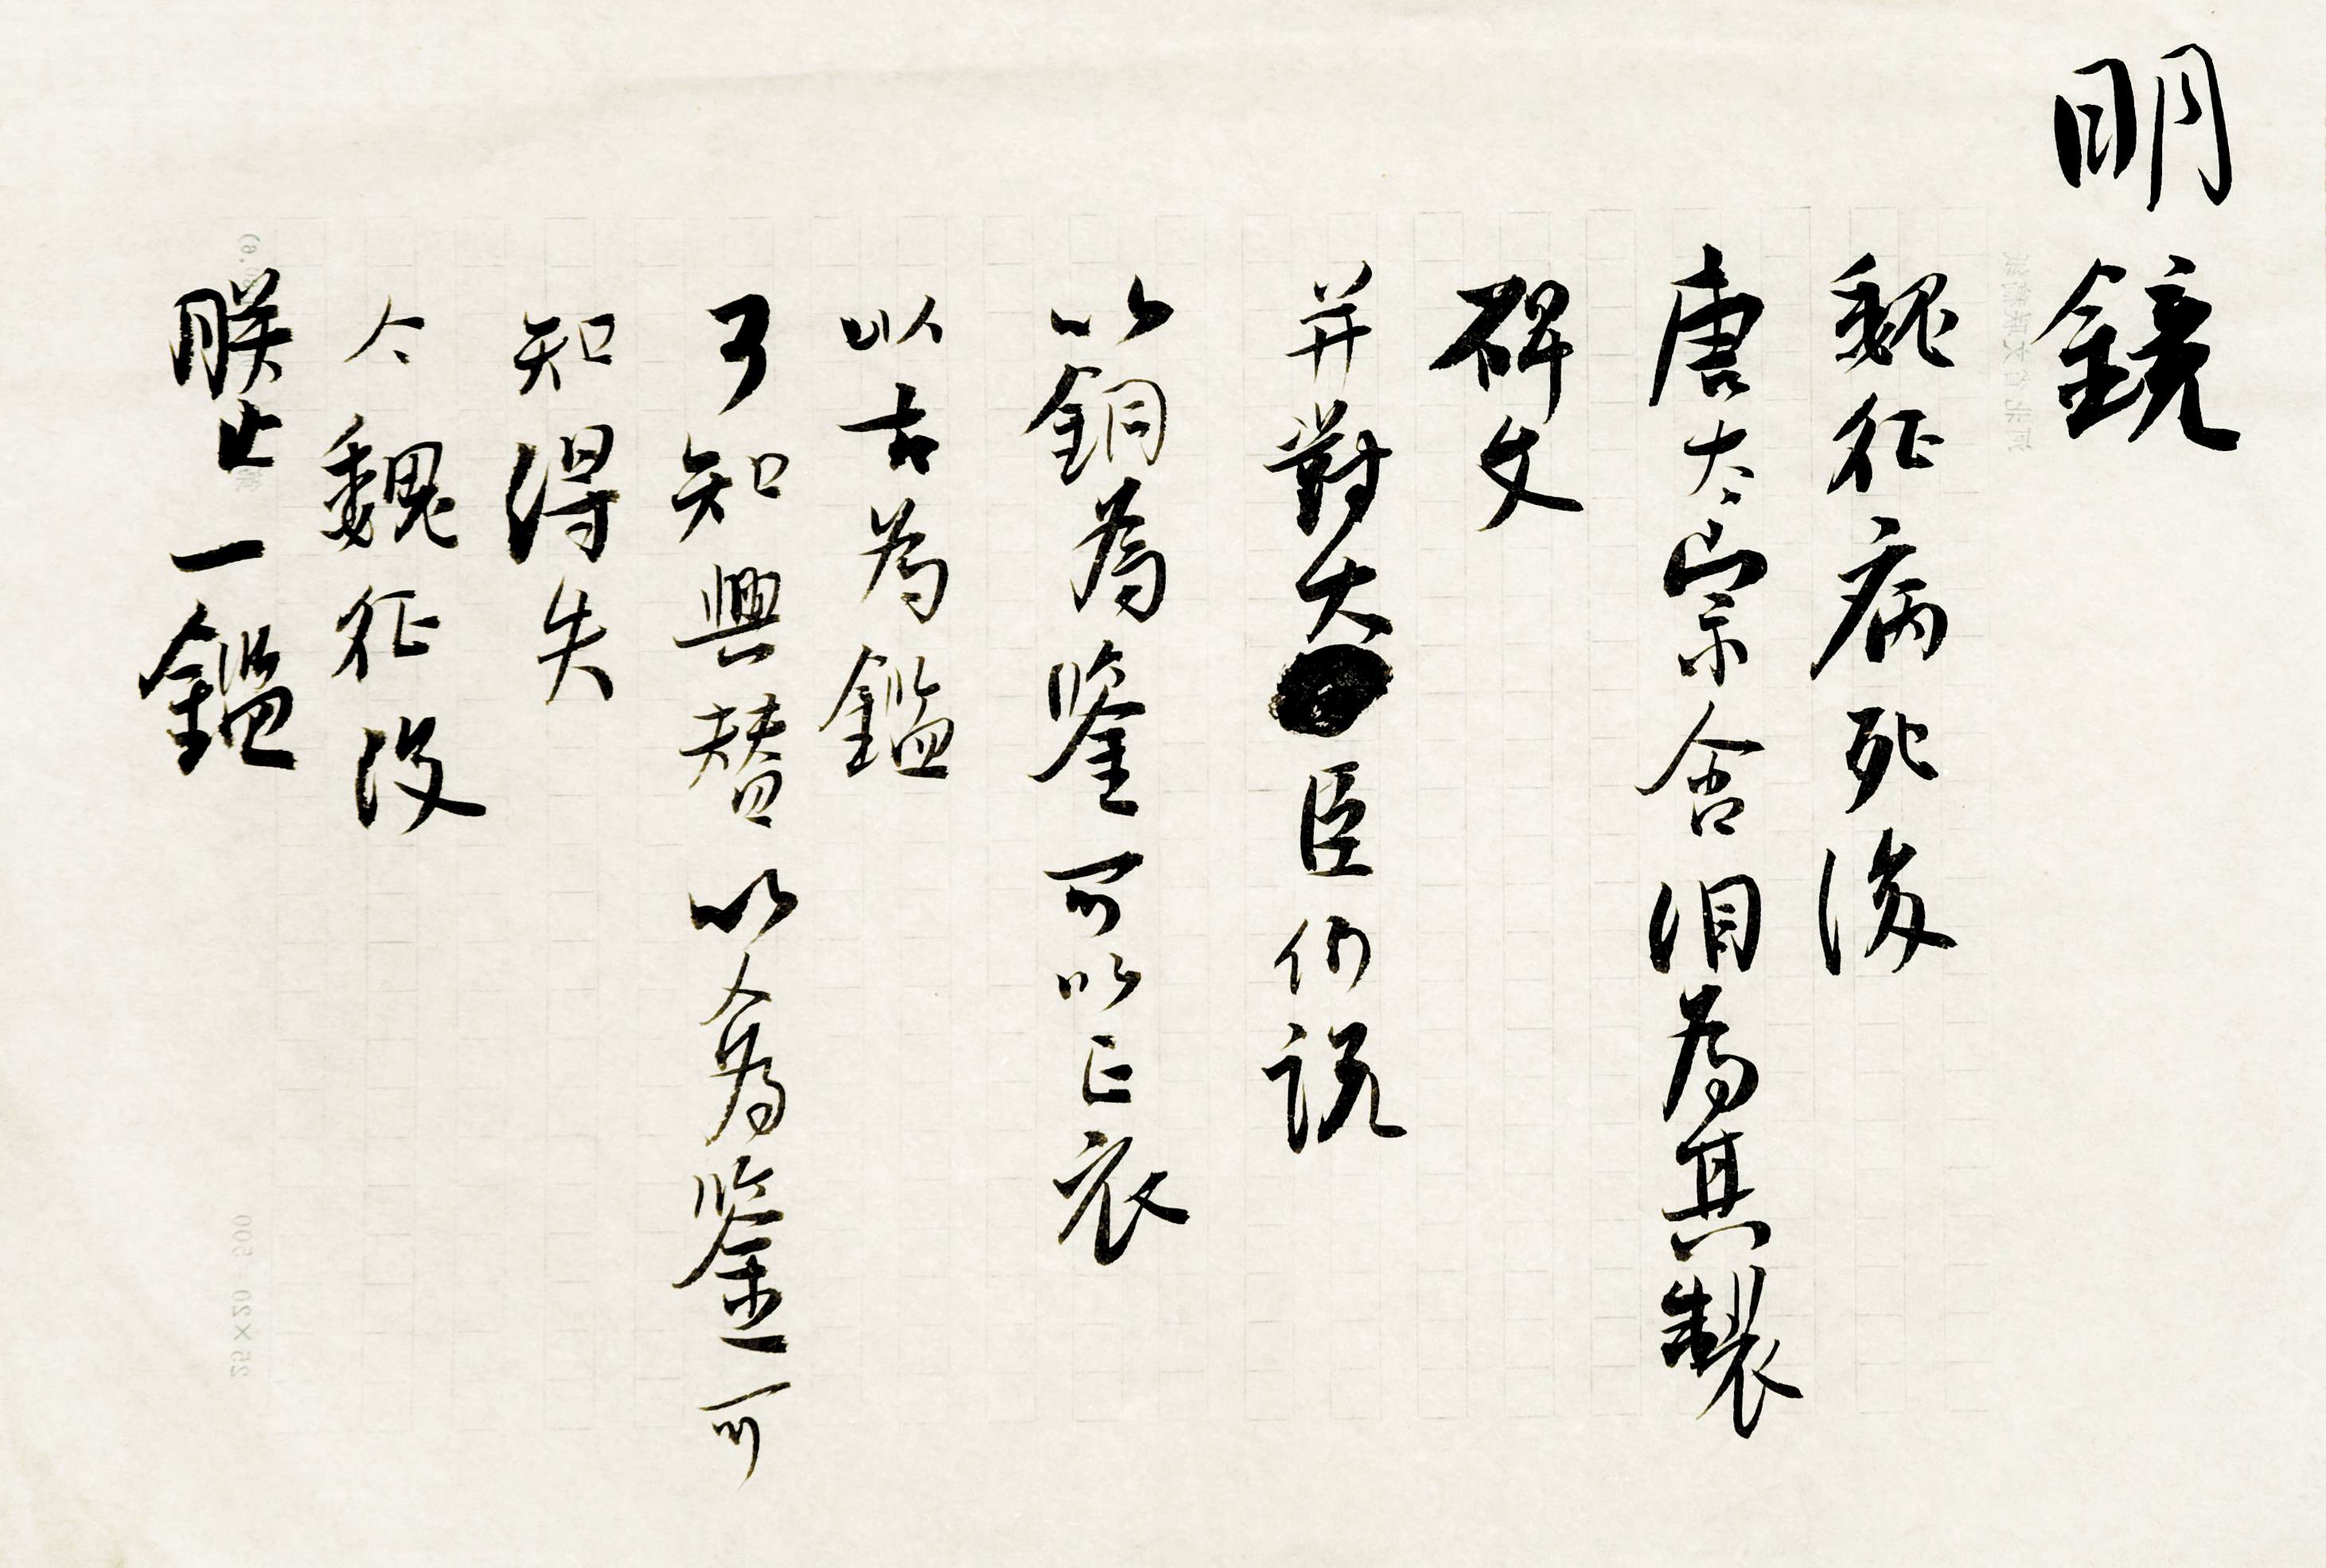 明鏡
魏征病死後
唐太宗含泪為其製
碑文
并對大臣们説
以銅為鉴可以正衣
以古為鑑
可知興替以人為鉴可
知得失
今魏征没
朕亡一鑑
25×20 500